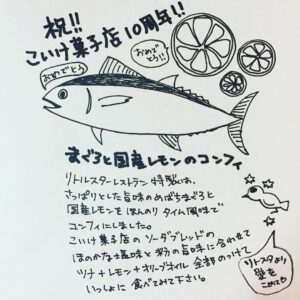 祝!!
こいけ菓子店10周年!!
おめでとう
おめでとう!
まぐろと国産レモンのコンフィ
リトルスターレストラン特製は、
さっぱりとした旨味のめばちまぐろと
国産レモンをほんのりタイム風味で
コンフィにしました。
こいけ菓子店のソーダブレッドの
ほのかな塩味と粉の旨味に合わせて
ツナ+レモン+オリーブオイル全部のっけて
いっしょに食べてみて下さい。
リトスタより
愛を
こめて!!